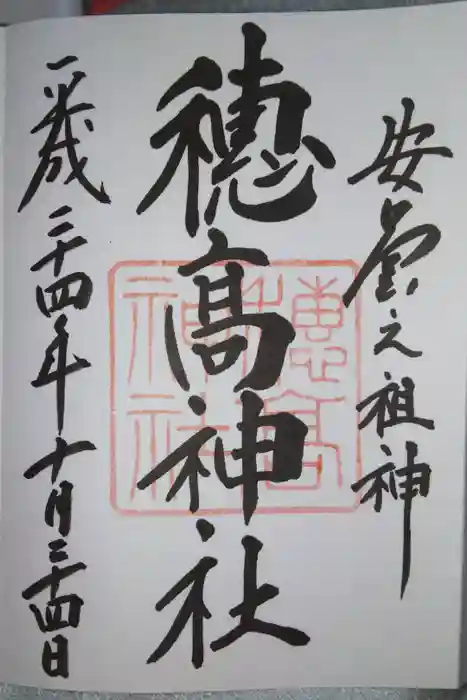 安曇之祖神
穂高神社
穂高神社
平成二十四年十月二十四日